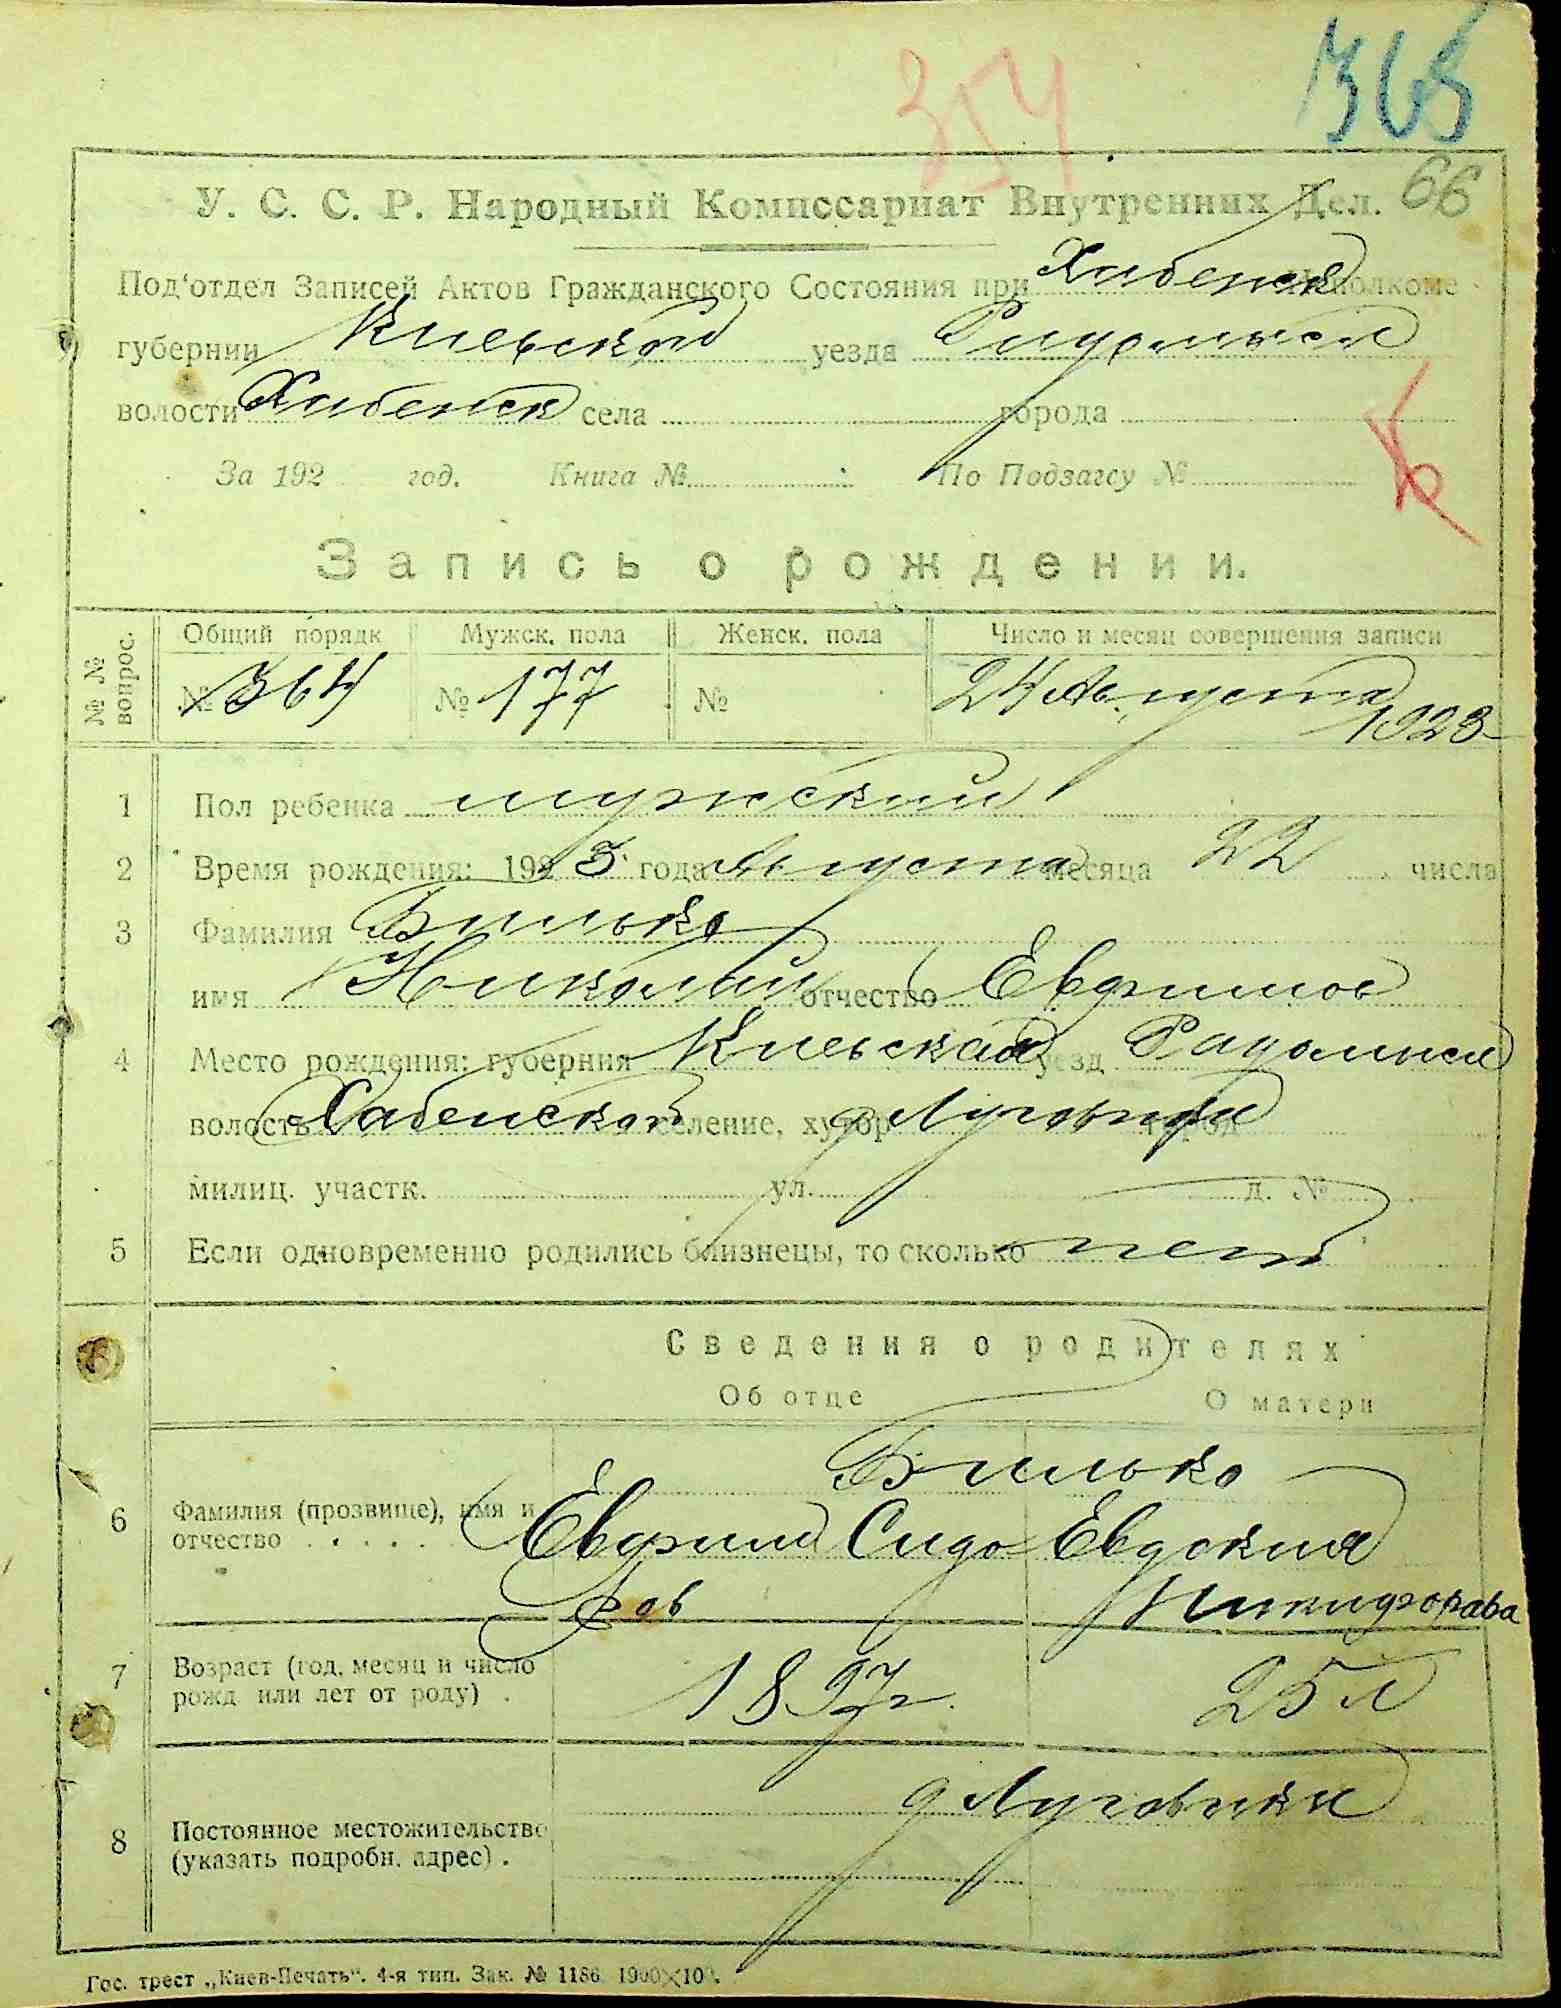 354
365
66
У. С. С. Р. Народный Комиссариат Внутренних Дел.
Под‘отдел Записей Актов Гражданского Состояния при Хабенск Исполкоме
губернии Киевской уезда Радомысл
волости Хабенск села города
За 192 год. Книга № По Подзагсу №
Запись о рождении.
№ № вопрос.
Общий порядк Мужск. пола Женск. пола Число и месяц совершения записи
№ 364 № 177 № 24 Августа
1923
1 Пол ребенка мужский
2 Время рождения: 1923 года Августа месяца 22 числа
3 Фамилия Билько
имя Николай отчество Евфимов
4 Место рождения: губерния Киевская уезд Радомысл
волость Хабенской селение, хутор д Луговики город
милиц. участк. ул. д. №
5 Если одновременно родились близнецы, то сколько нет
Сведения о родителях
Об отце О матери
Билько
6 Фамилия (прозвище), имя и
отчество . . . . . Евфим Сидо Евдокия
ров Никифорава
7 Возраст (год, месяц и число
рожд или лет от роду) . 1897 г. 25 л
д Луговики
8 Постоянное местожительство
(указать подробн. адрес) .
Гос. трест „Киев-Печать“. 4-я тип. Зак. № 1186. 1900×100.